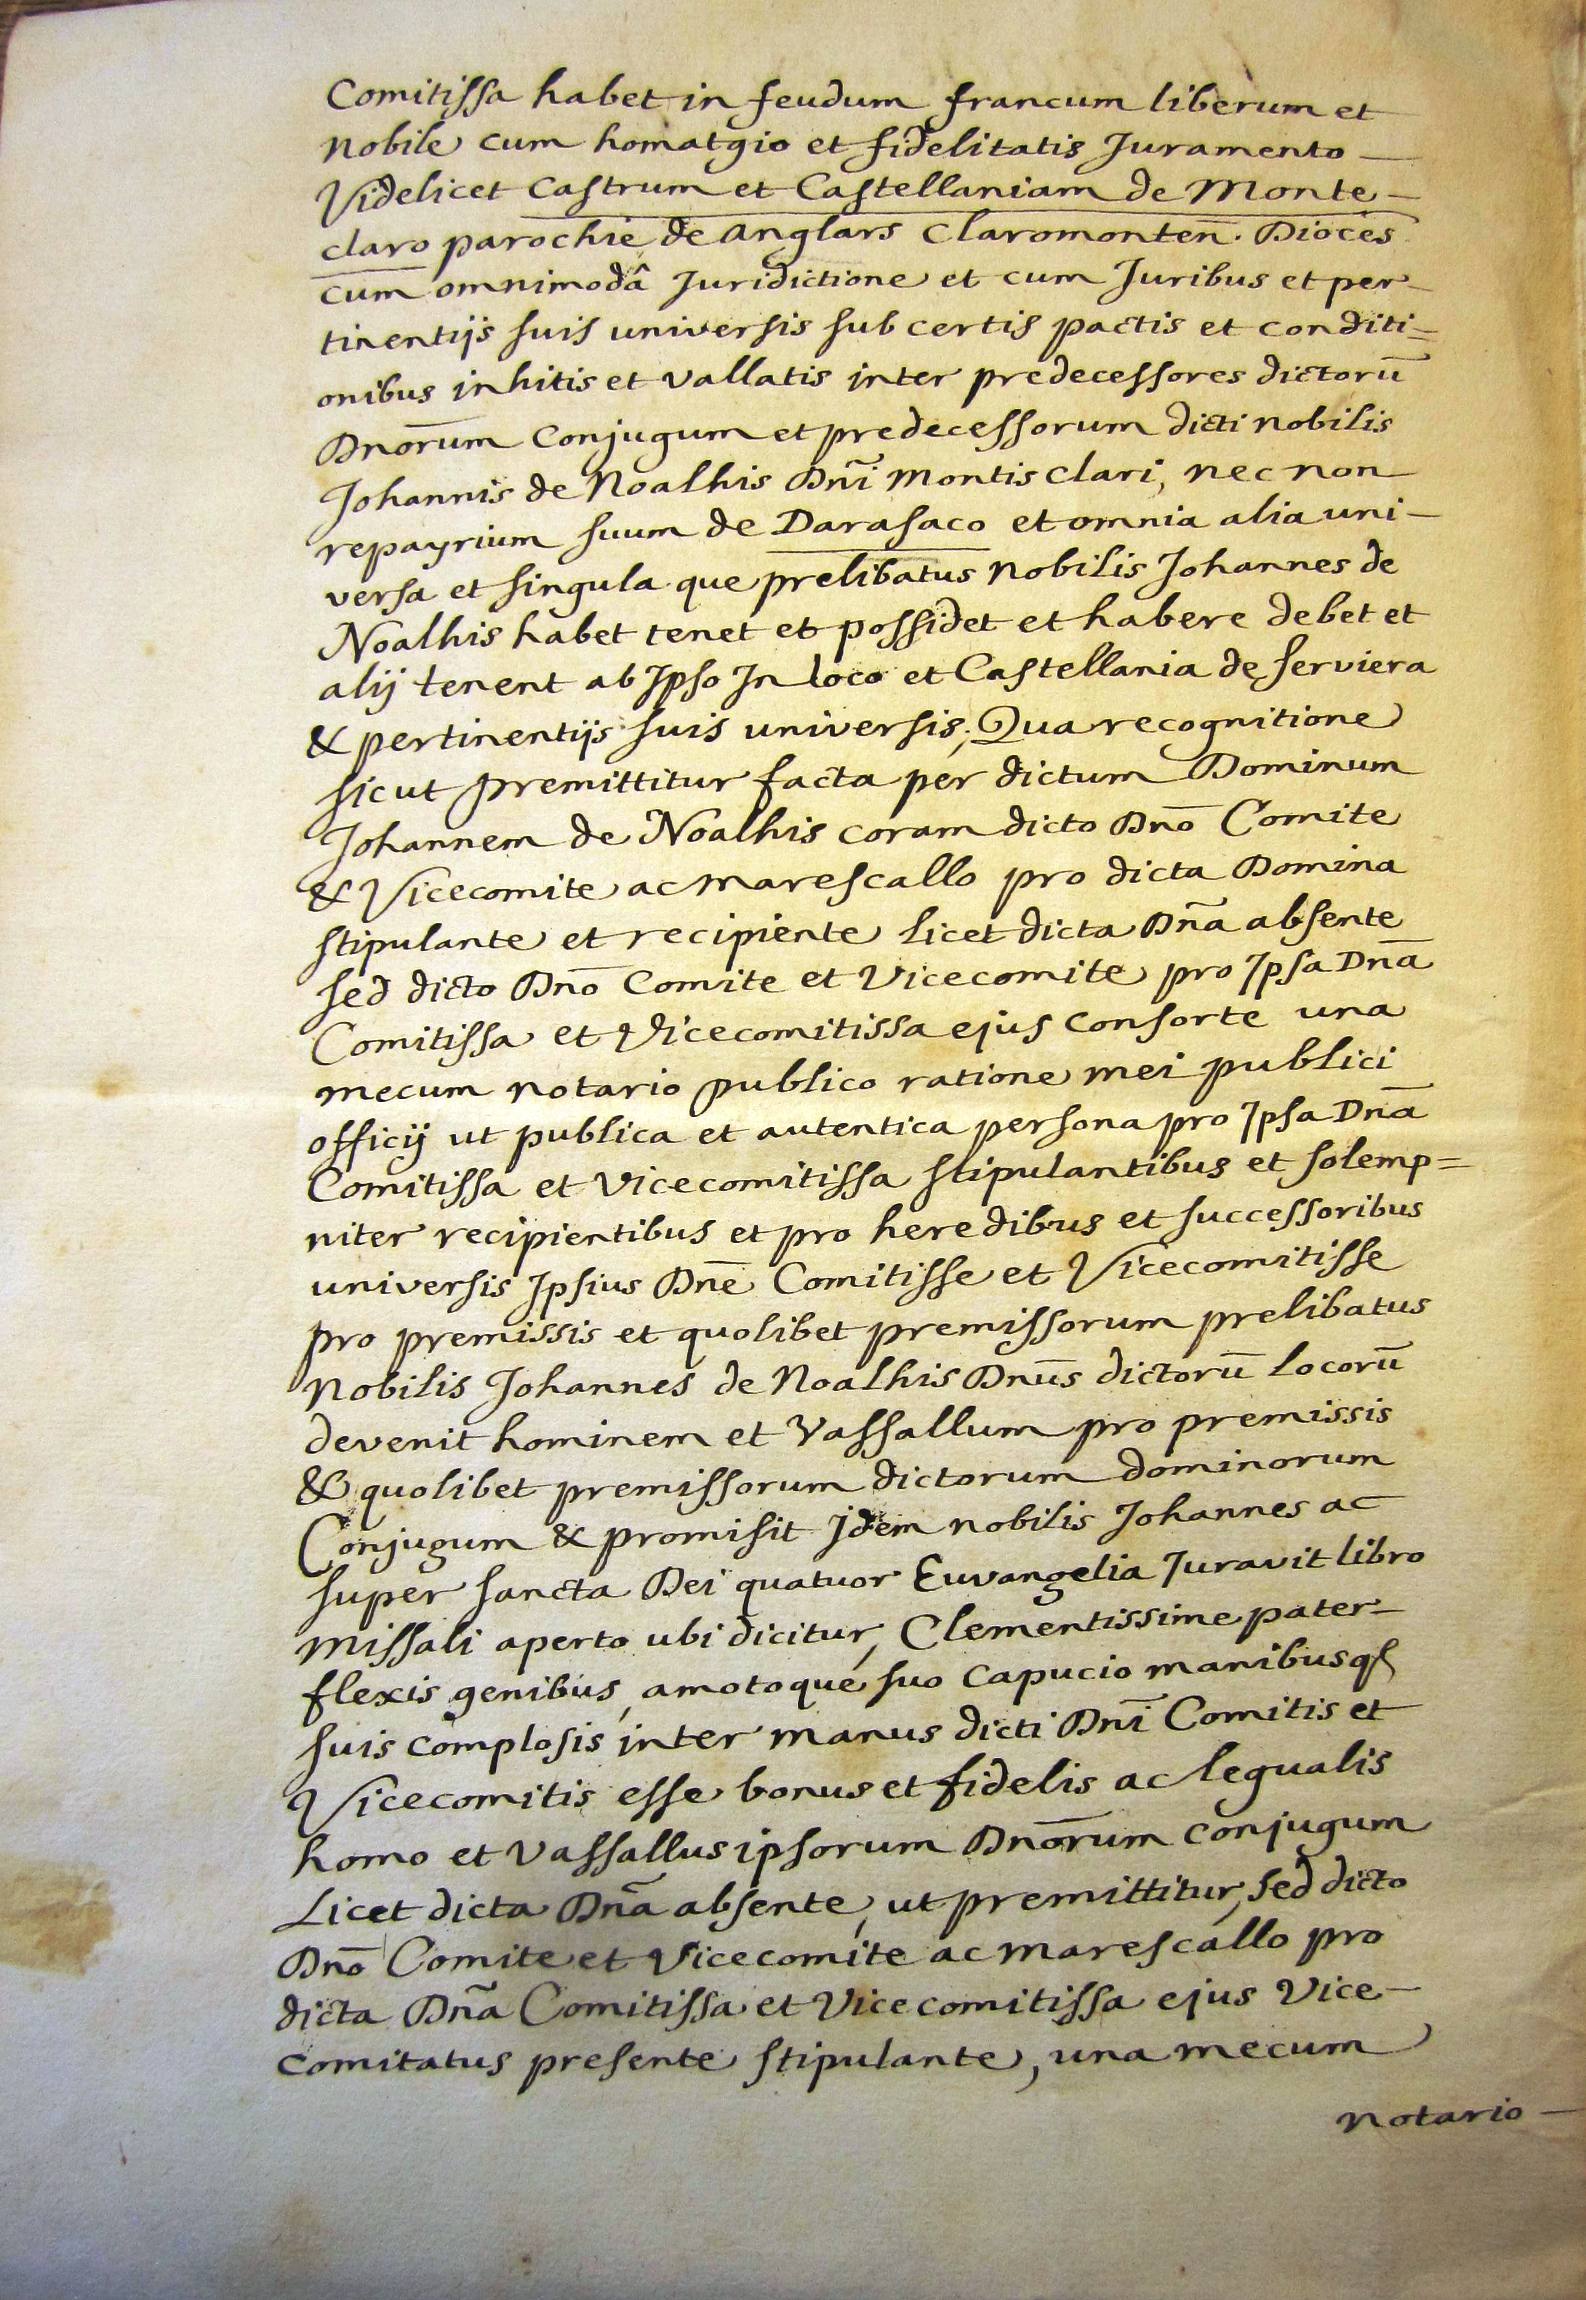 Comitissa habet in feudum francum liberum et
nobile cum homatgio et fidelitatis Juramento —
Videlicet Castrum et Castellaniam de Monte —
claro parochie de Anglars Claromonten̄. Dioces
cum omnimodâ Juridictione et cum Juribus et per-
tinentijs suis universis sub certis pactis et conditi=
onibus inhitis et vallatis inter predecessores dictorū
Dnōrum Conjugum et predecessorum dicti nobilis
Johannis de Noalhis Dnī Montisclari, nec non
repayrium suum de Darasaco et omnia alia uni-
versa et singula que prelibatus nobilis Johannes de
Noalhis habet tenet et possidet et habere debet et
alij tenent ab Ipso In loco et Castellania de serviera
& pertinentijs suis universis; Qua recognitione
sicut premittitur facta per dictum Dominum
Johannem de Noalhis coram dicto Dnō Comite
& Vicecomite ac marescallo pro dicta Domina
stipulante et recipiente licet dicta Dnā absente
sed dicto Dnō Comite et Vicecomite pro Ipsa Dnā
Comitissa et Vicecomitissa ejus consorte una
mecum notario publico ratione mei publici
officij ut publica et autentica persona pro Ipsa Dnā
Comitissa et Vicecomitissa stipulantibus et solemp=
niter recipientibus et pro heredibus et successoribus
universis Ipsius Dnē Comitisse et Vicecomitisse
pro premissis et quolibet premissorum prelibatus
Nobilis Johannes de Noalhis Dnūs dictorū locorū
devenit hominem et Vassallum pro premissis
& quolibet premissorum dictorum dominorum
Conjugum & promisit Jdem nobilis Johannes ac
super sancta Dei quatuor Euvangelia Juravit libro
missali aperto ubi dicitur, Clementissime pater —
flexis genibus, amotoque suo capucio manibusqꝫ
suis complosis inter manus dicti Dnī Comitis et
Vicecomitis esse bonus et fidelis ac legualis
homo et Vassallus ipsorum Dnōrum conjugum
Licet dicta Dnā absente, ut premittitur, sed dicto
Dnō Comite et Vicecomite ac marescallo pro
dicta Dnā Comitissa et Vicecomitissa ejus Vice —
comitatus presente stipulante, una mecum
notario —